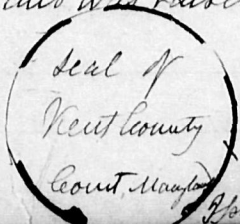 Seal of
Kent County
Court, Maryland